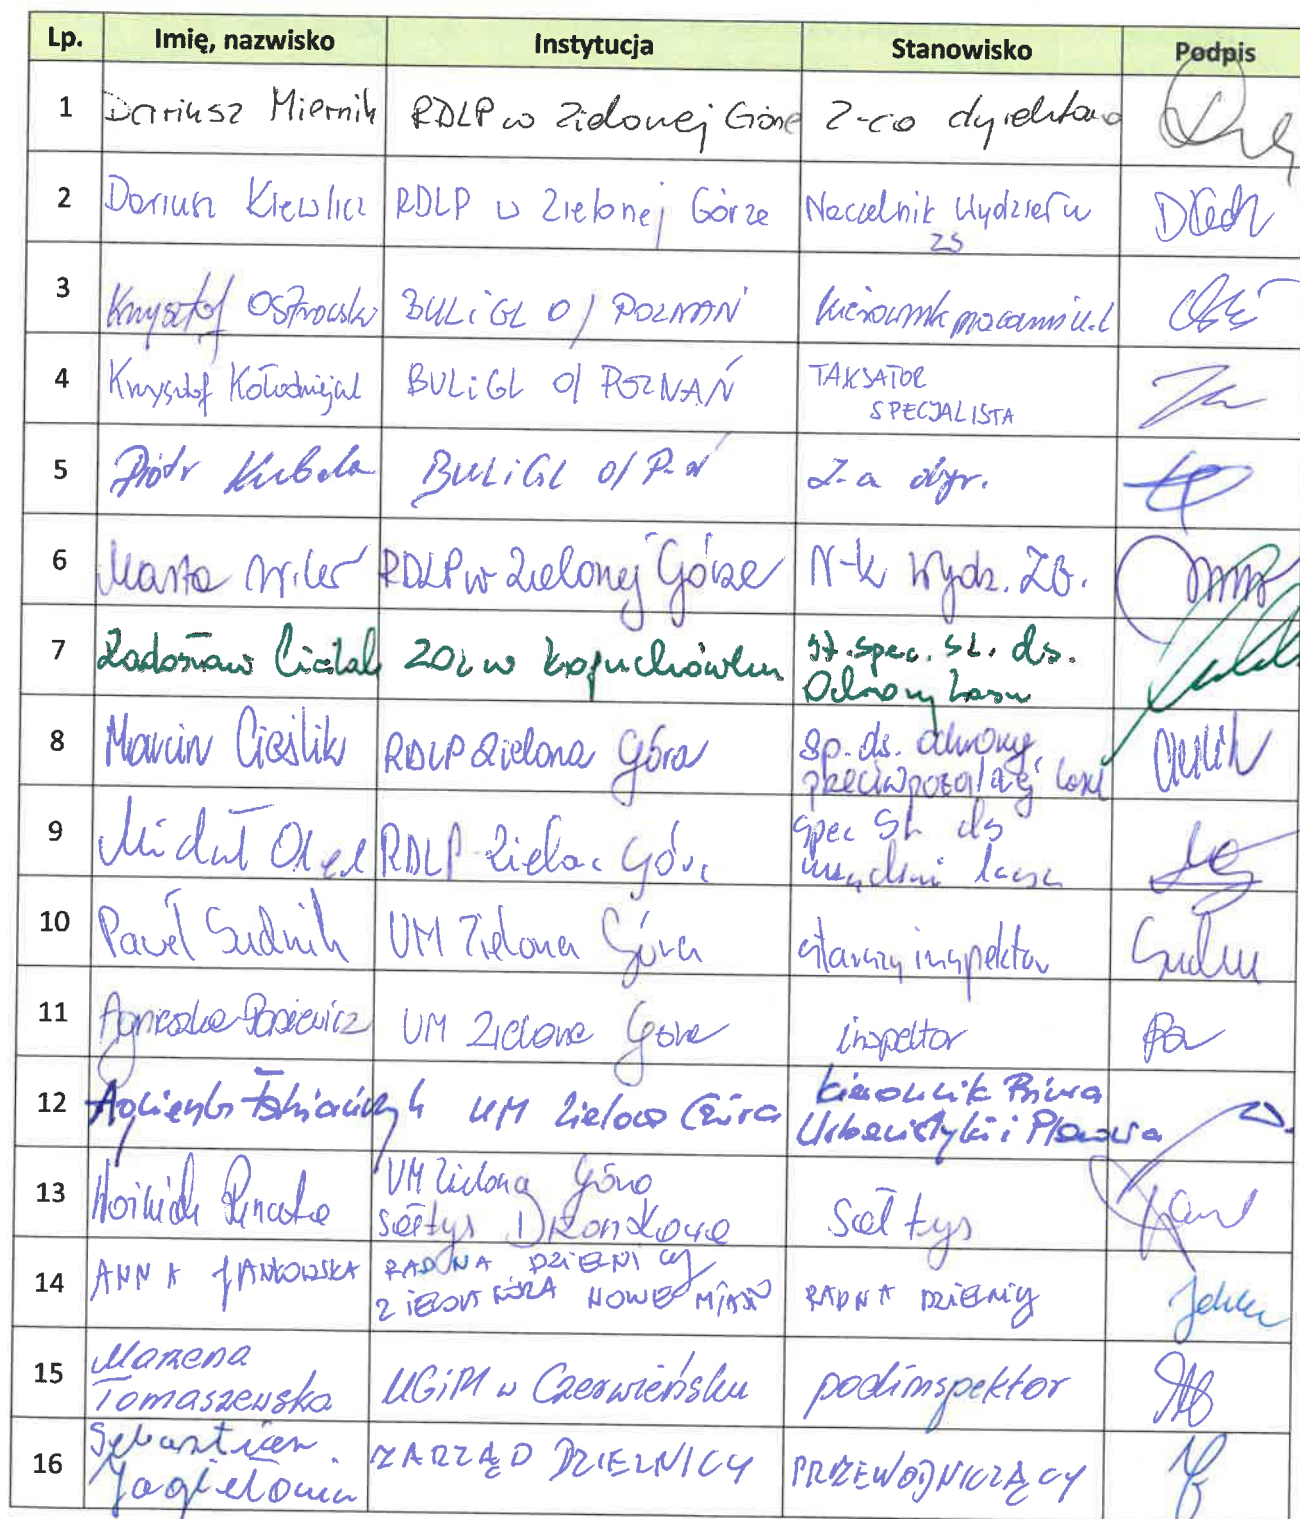 Lp. Imię, nazwisko Instytucja Stanowisko Podpis
1 Dariusz Miernik RDLP w Zielonej Górze Z-ca dyrektora
2 Dariusz Kiewlicz RDLP w Zielonej Górze Naczelnik Wydziału
ZS
3 Krzysztof Ostrowski BULiGL O/ POZNAŃ kierownik pracowni u.l
4 Krzysztof Kołodziejczak BULiGL O/ POZNAŃ TAKSATOR
SPECJALISTA
5 Piotr Kubala BULiGL O/ P-ń Z-a dyr.
6 Marta RDLP w Zielonej Górze N-k Wydz. ZO.
7 Radosław ZOL w Kożuchówku St. spec. SL. ds.
Ochrony Lasu
8 Marcin Cieślik RDLP Zielona Góra Sp. ds. ochrony
przeciwpożarowej lasu
9 Michał RDLP Zielona Góra spec SL ds
urządzania lasu
10 Paweł Sudnik UM Zielona Góra starszy inspektor
11 Agnieszka UM Zielona Góra inspektor
12 Agnieszka UM Zielona Góra kierownik Biura
Urbanistyki i Planowa
13 UM Zielona Góra
Sołtys Drzonkowa Sołtys
14 ANNA JANKOWSKA RADNA DZIELNICY
ZIELONA GÓRA NOWE MIASTO RADNA DZIELNICY
15 Marzena
Tomaszewska UGiM w Czerwieńsku podinspektor
16 Sebastian
Jagiełowicz ZARZĄD DZIELNICY PRZEWODNICZĄCY